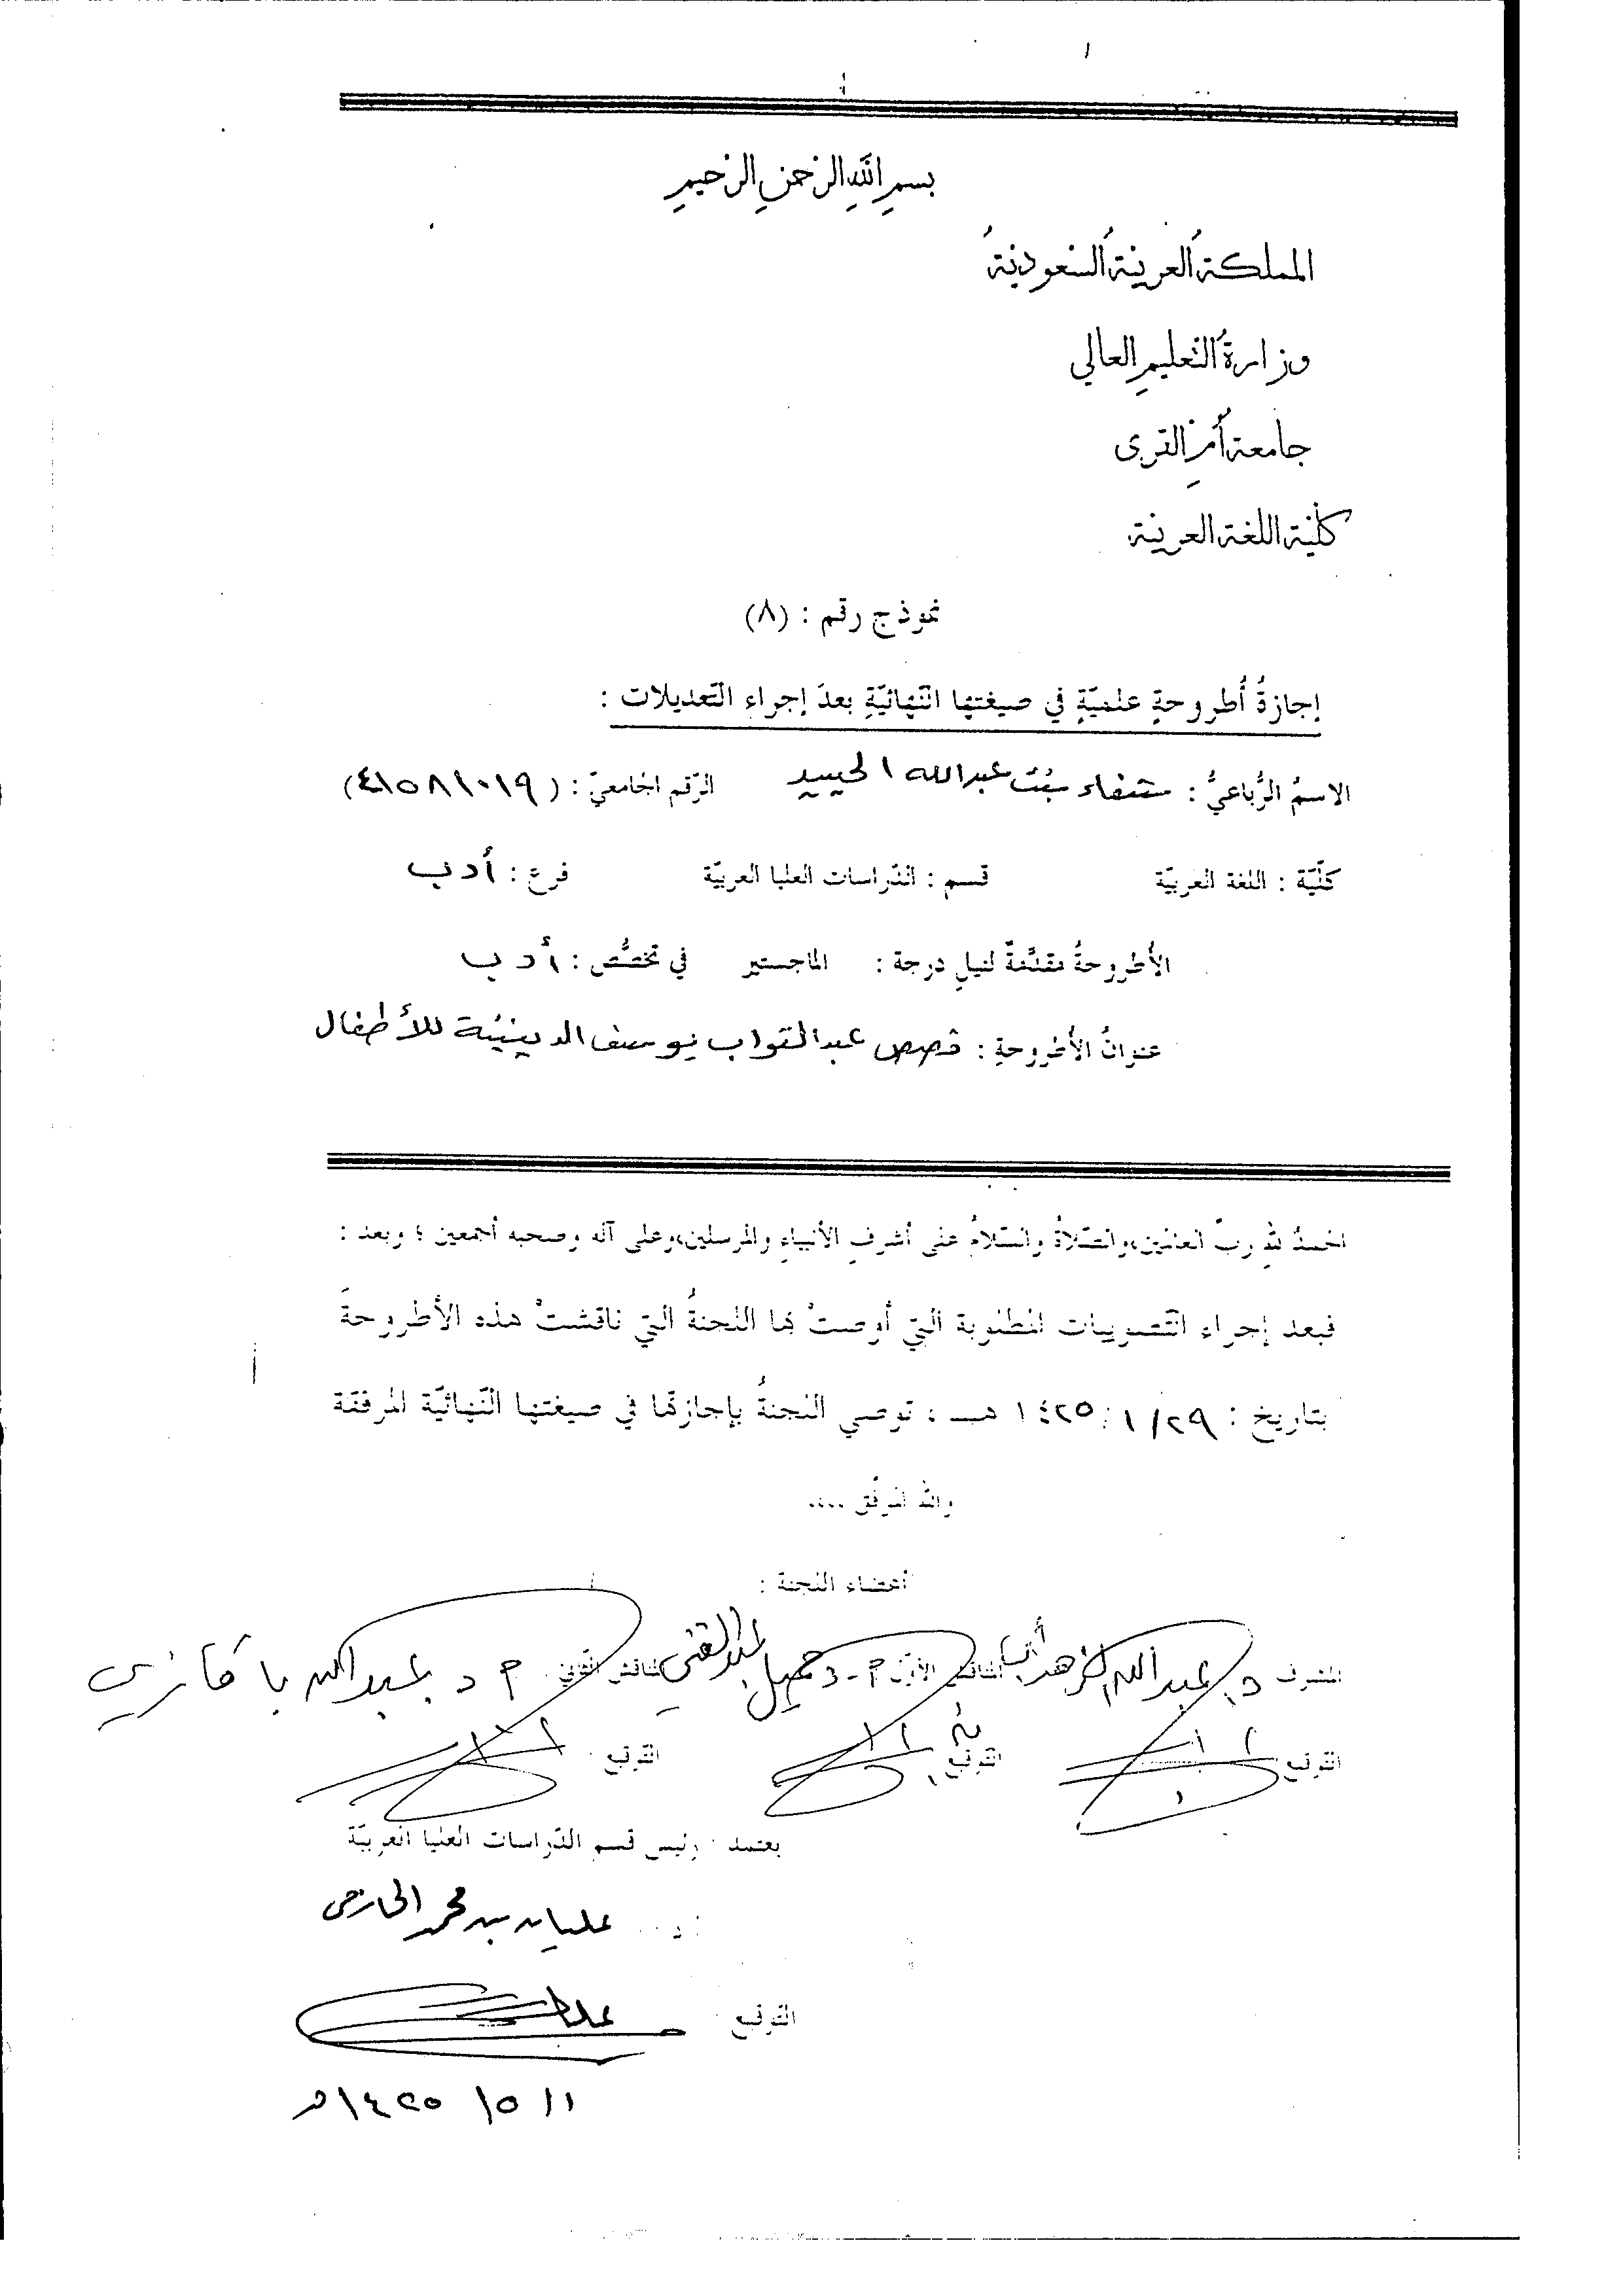 بسم الله الرحمن الرحيم
المملكة العربية السعودية
وزارة التعليم العالي
جامعة أم القرى
كلية اللغة العربية
نموذج رقم : (٨)
إجازةُ أُطروحةٍ علميّةٍ في صيغتها النّهائيّةِ بعدَ إجراء التّعديلات :
الاسمُ الرُّباعيُّ : شفاء بنت عبدالله الرّقم الجامعيّ : (٤١٥٨١٠١٩)
كلّيّة : اللغة العربيّة قسم : الدّراسات العليا العربيّة فرع : أدب
الأطروحةُ مقدَّمةٌ لنيلِ درجة : الماجستير في تخصُّص : أدب
عنوانُ الأطروحةِ : قصص عبدالتواب يوسف الدينية للأطفال
الحمدُ لله ربّ العالمين، والصّلاةُ والسّلامُ على أشرفِ الأنبياءِ والمرسلين، وعلى آله وصحبه أجمعين ؛ وبعد :
فبعد إجراء التّصويبات المطلوبة التي أوصتْ بها اللجنةُ التي ناقشتْ هذه الأطروحةَ
بتاريخ : ٢٩ / ١ / ١٤٢٥ هـ ، توصي اللجنةُ بإجازتها في صيغتها النّهائيّة المرفقة
والله الموفّق ....
أعضاء اللجنة :
المشرف د. عبدالله الزهراني المناقش الأول أ.د جميل المناقش الثاني د عبدالله باقازي
التوقيع التوقيع التوقيع
يعتمد : رئيس قسم الدّراسات العليا العربيّة
د. عليان بن محمد الحازمي
التوقيع
١ / ٥ / ١٤٢٥ هـ